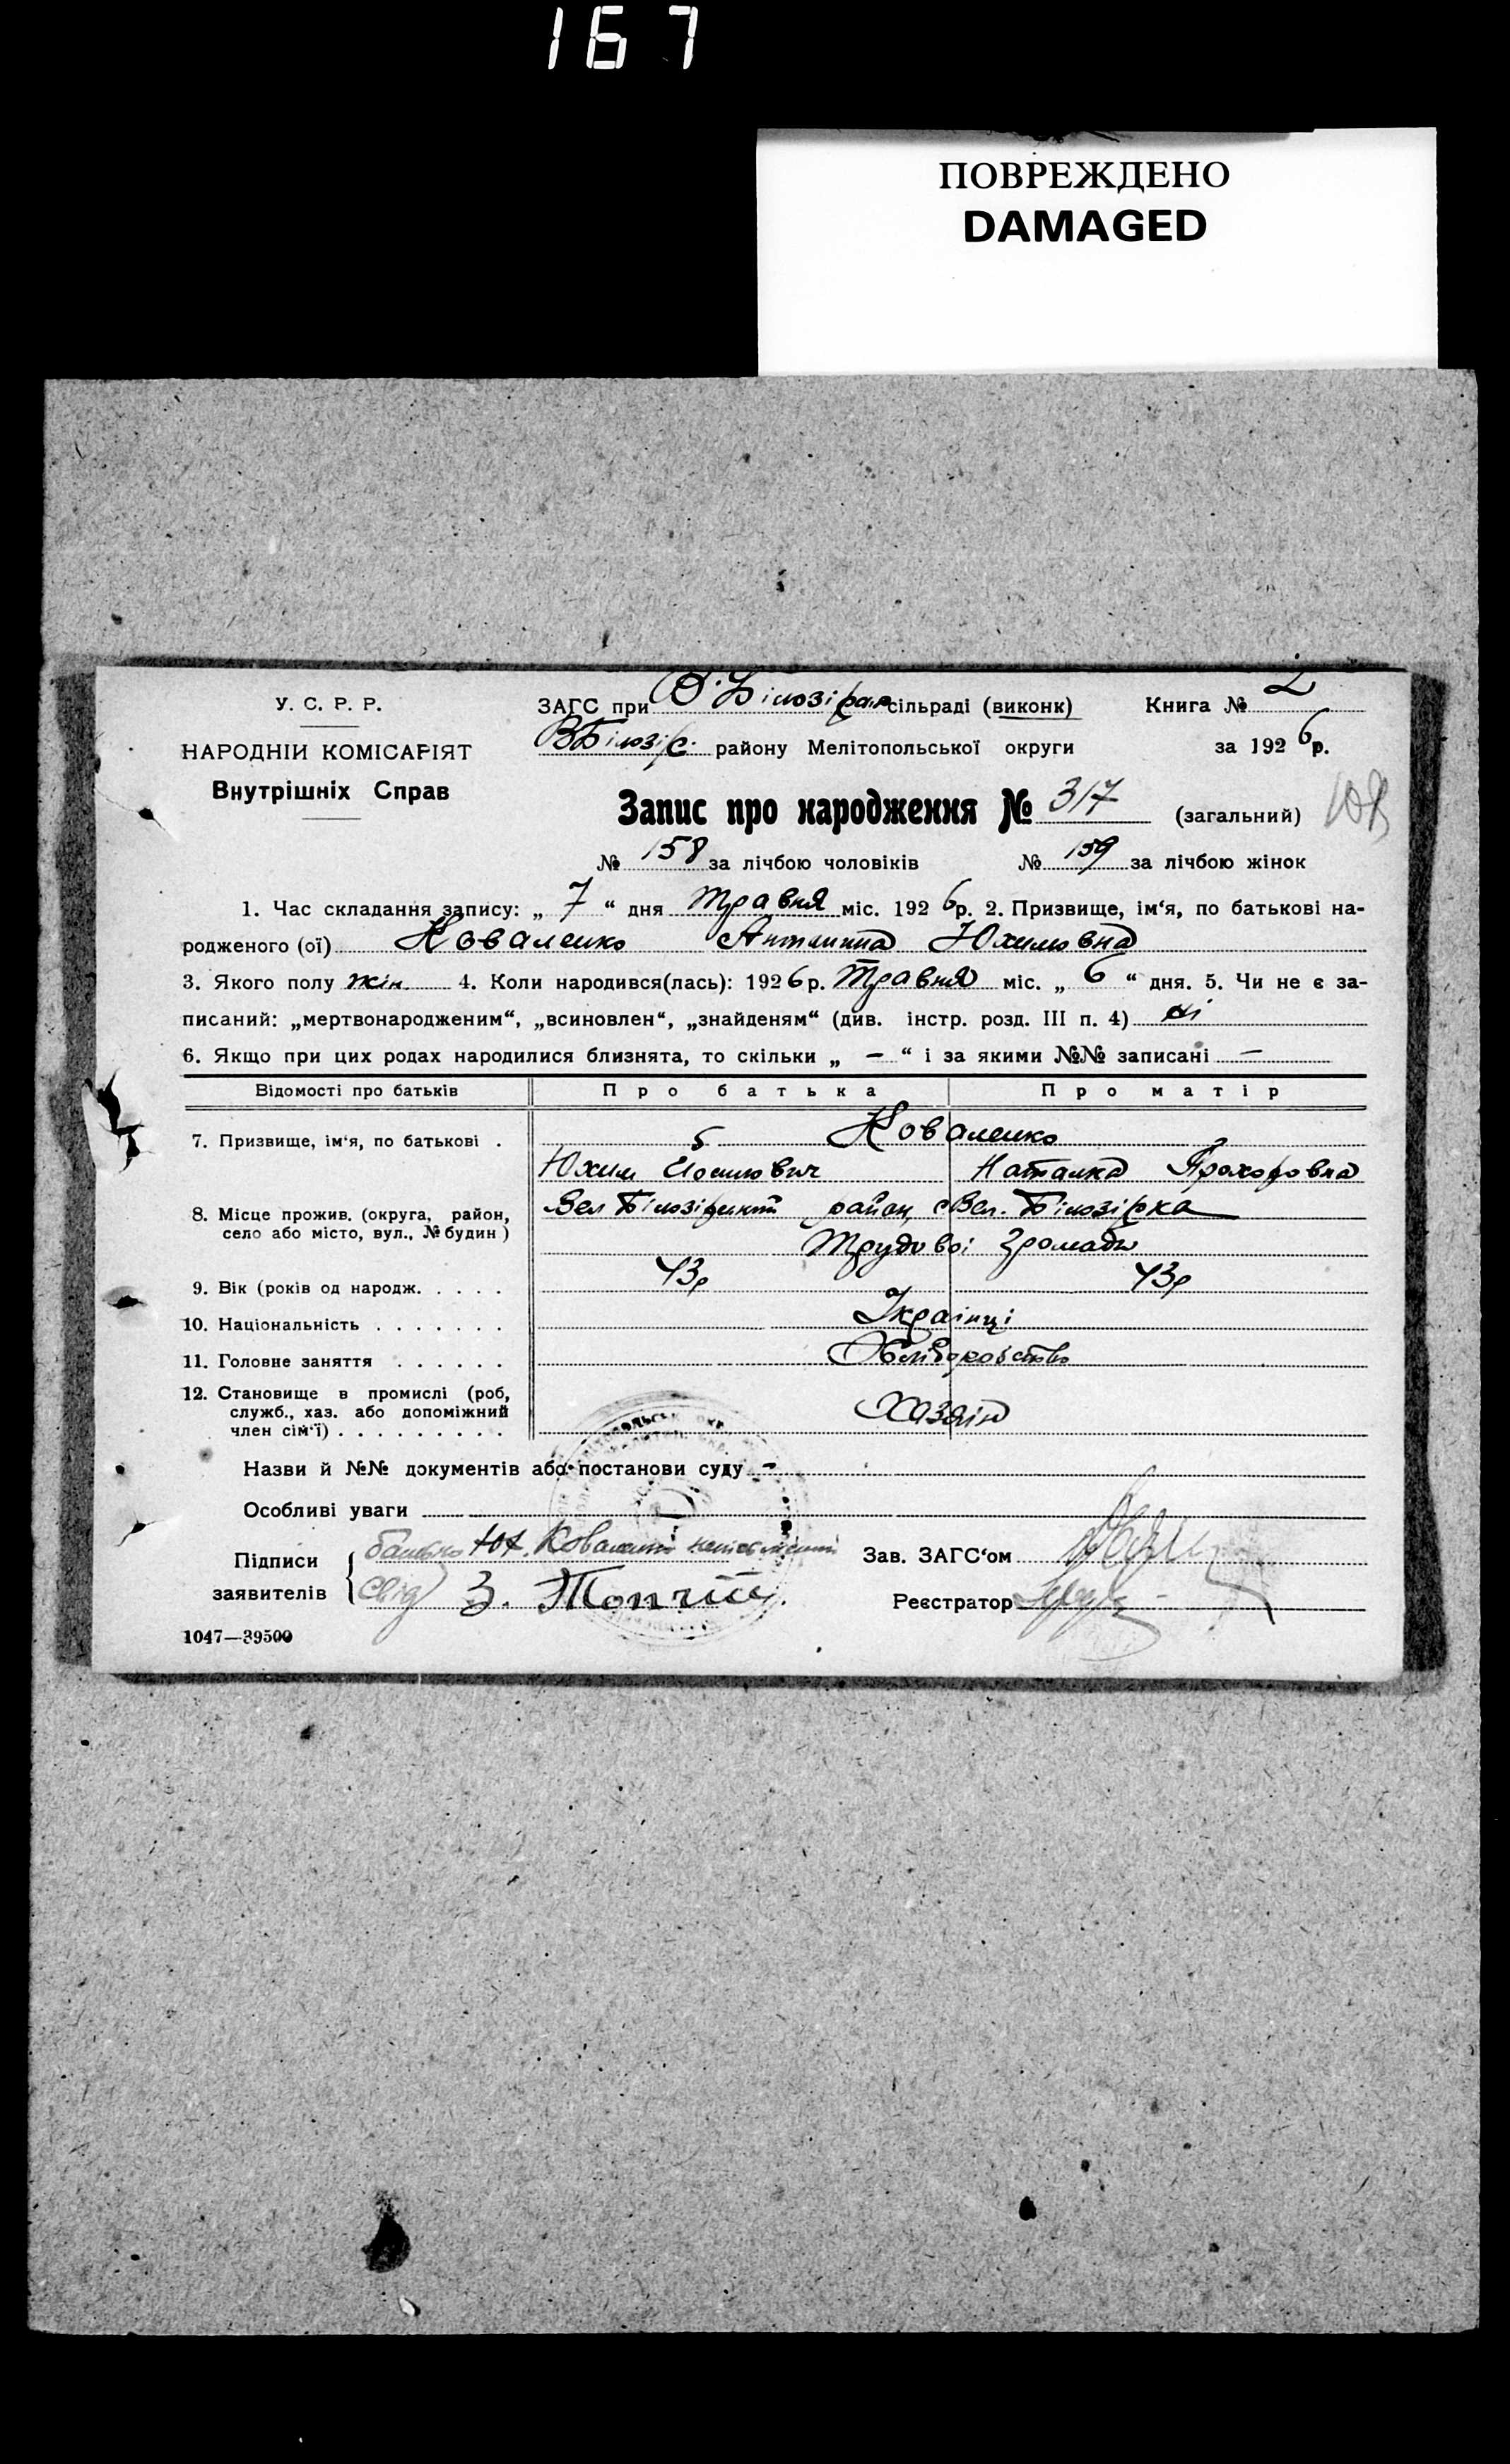 167
ПОВРЕЖДЕНО
DAMAGED
У. С. Р. Р.
НАРОДНІЙ КОМІСАРІЯТ
Внутрішніх Справ
ЗАГС при В. Білозірка сільраді (виконк) Книга № 2
В Білозірс. району Мелітопольської округи за 1926 р.
Запис про народження № 317 (загальний)
№ 158 за лічбою чоловіків № 159 за лічбою жінок
1. Час складання запису: „ 7 “ дня Травня міс. 1926 р. 2. Призвище, ім‘я, по батькові на-
родженого (ої) Коваленко Антонина Юхимовна
3. Якого полу жін. 4. Коли народився(лась): 1926 р. Травня міс. „ 6 “ дня. 5. Чи не є за-
писаний: „мертвонародженим“, „всиновлен“, „знайденям“ (див. інстр. розд. III п. 4) ні
6. Якщо при цих родах народилися близнята, то скільки „ — “ і за якими №№ записані —
Відомості про батьків Про батька Про матір
7. Призвище, ім‘я, по батькові . Коваленко
Юхим Йосипович Наталка Прохоровна
8. Місце прожив. (округа, район, Вел Білозірський район, с Вел. Білозірка
село або місто, вул., № будин) Трудової Громади
9. Вік (років од народж. . . . . 43р 43р
10. Національність . . . . . . . Українці
11. Головне заняття . . . . . . Хліборобство
12. Становище в промислі (роб,
служб., хаз. або допоміжний
член сім‘ї) . . . . . . . . . Хазяїн
Назви й №№ документів або постанови суду —
Особливі уваги —
Підписи
заявителів
батько Юх. Коваленко
Свід З. Топчій
Зав. ЗАГС‘ом
Реєстратор
1047—39500